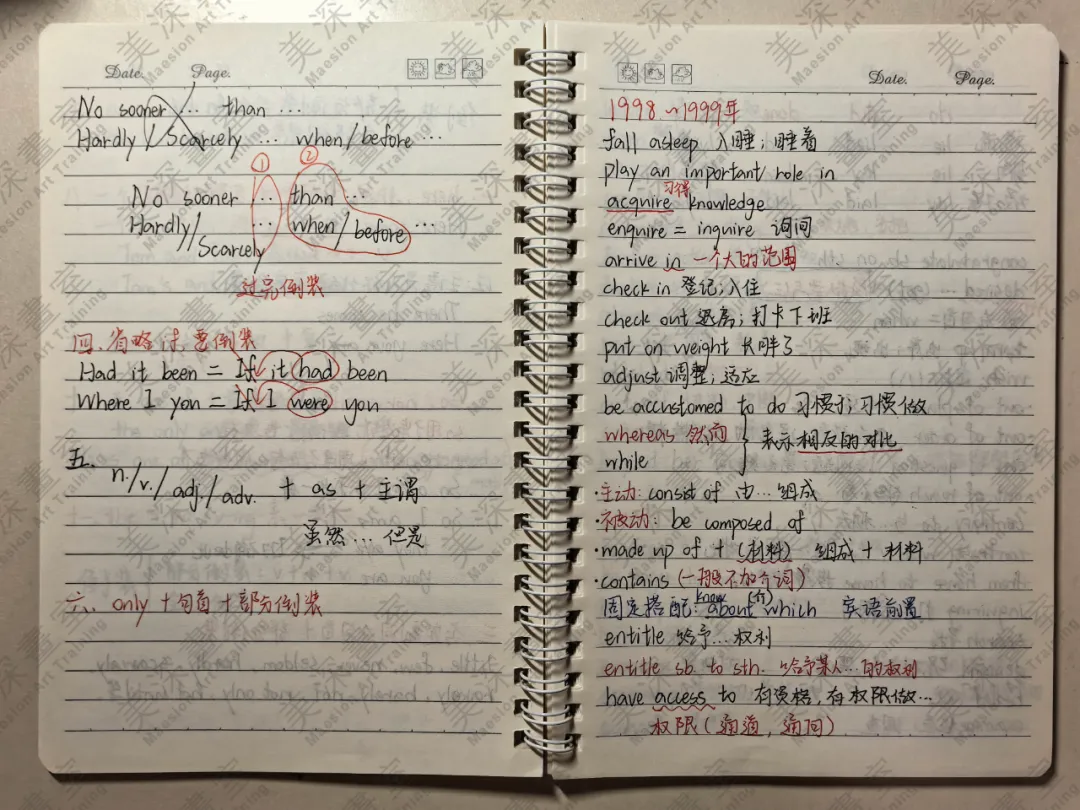 Date. Page.
No sooner ... than ...
Hardly / Scarcely ... when/before ...
① ②
No sooner ... than ...
Hardly/ ... when/before ...
Scarcely
过完倒装
四、省略if, 要倒装
Had it been = If it had been
Where I you = If I were you
五、
n./v./adj./adv. + as + 主谓
虽然... 但是
六、only + 句首 + 部分倒装
Date. Page.
1998~1999年
fall asleep 入睡; 睡着
play an important role in
习得
acquire knowledge
enquire = inquire 询问
arrive in 一个大的范围
check in 登记; 入住
check out 退房; 打卡下班
put on weight 长胖了
adjust 调整; 适应
be accustomed to do 习惯于; 习惯做
whereas 然而
while
表示相反的对比
·主动: consist of 由...组成
·被动: be composed of
·made up of + (材料) 组成 + 材料
·contains (一般不加介词)
know
固定搭配: about which 宾语前置
entitle 给予...权利
entitle sb. to sth. 给予某人...的权利
have access to 有资格, 有权限做...
权限 (通道, 通问)
美深畫室
Maesion Art Training